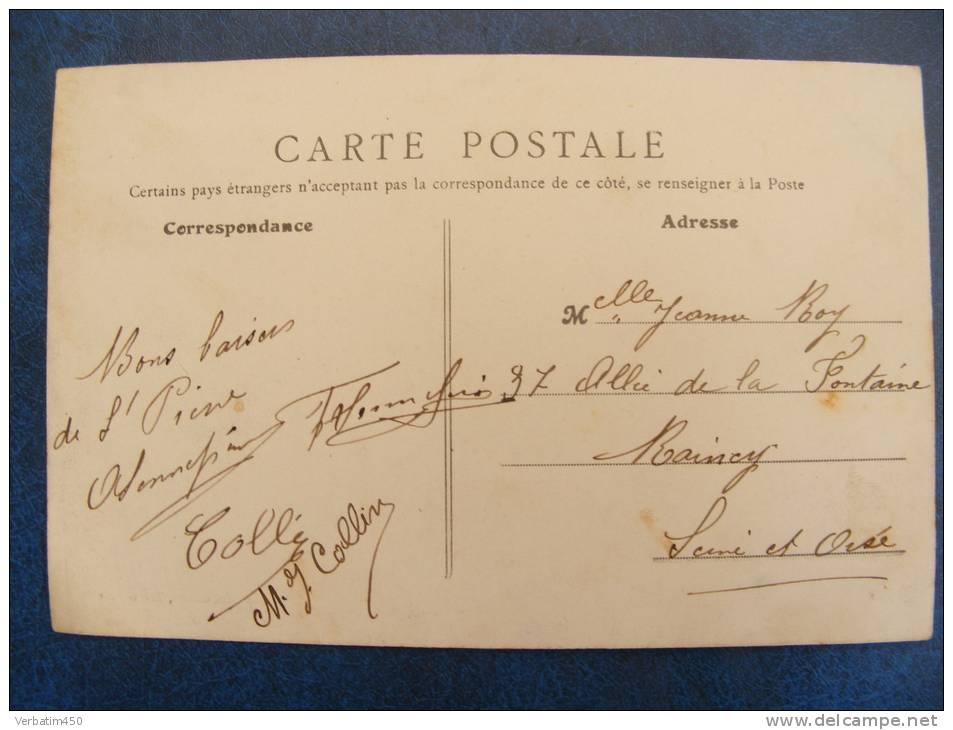 CARTE POSTALE
Certains pays étrangers n'acceptant pas la correspondance de ce côté, se renseigner à la Poste
Correspondance
Bons baisers
de St Pierre
Collin
M. J. Collin
Adresse
Melle Jeanne Roy
97 Allée de la Fontaine
Raincy
Seine et Oise
Verbatim450
www.delcampe.net